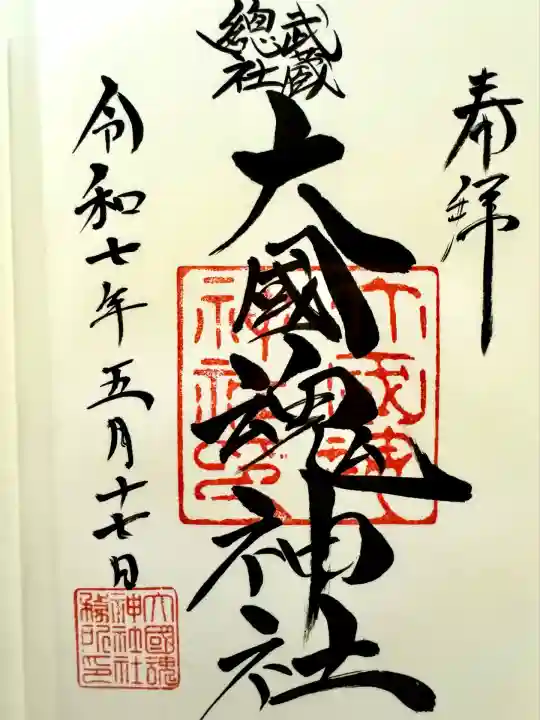 奉拝
武蔵
總社
大國魂神社
令和七年五月十七日
大國魂
神社印
大國魂
神社社
務所印